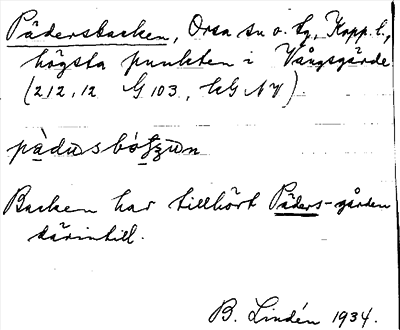 Pädersbacken, Orsa sn o. tg, Kopp. l.,
högsta punkten i Vångsgärde
(212,12 G 103, EG NV).
Backen har tillhört Päders-gården
därintill.
B. Lindén 1934.